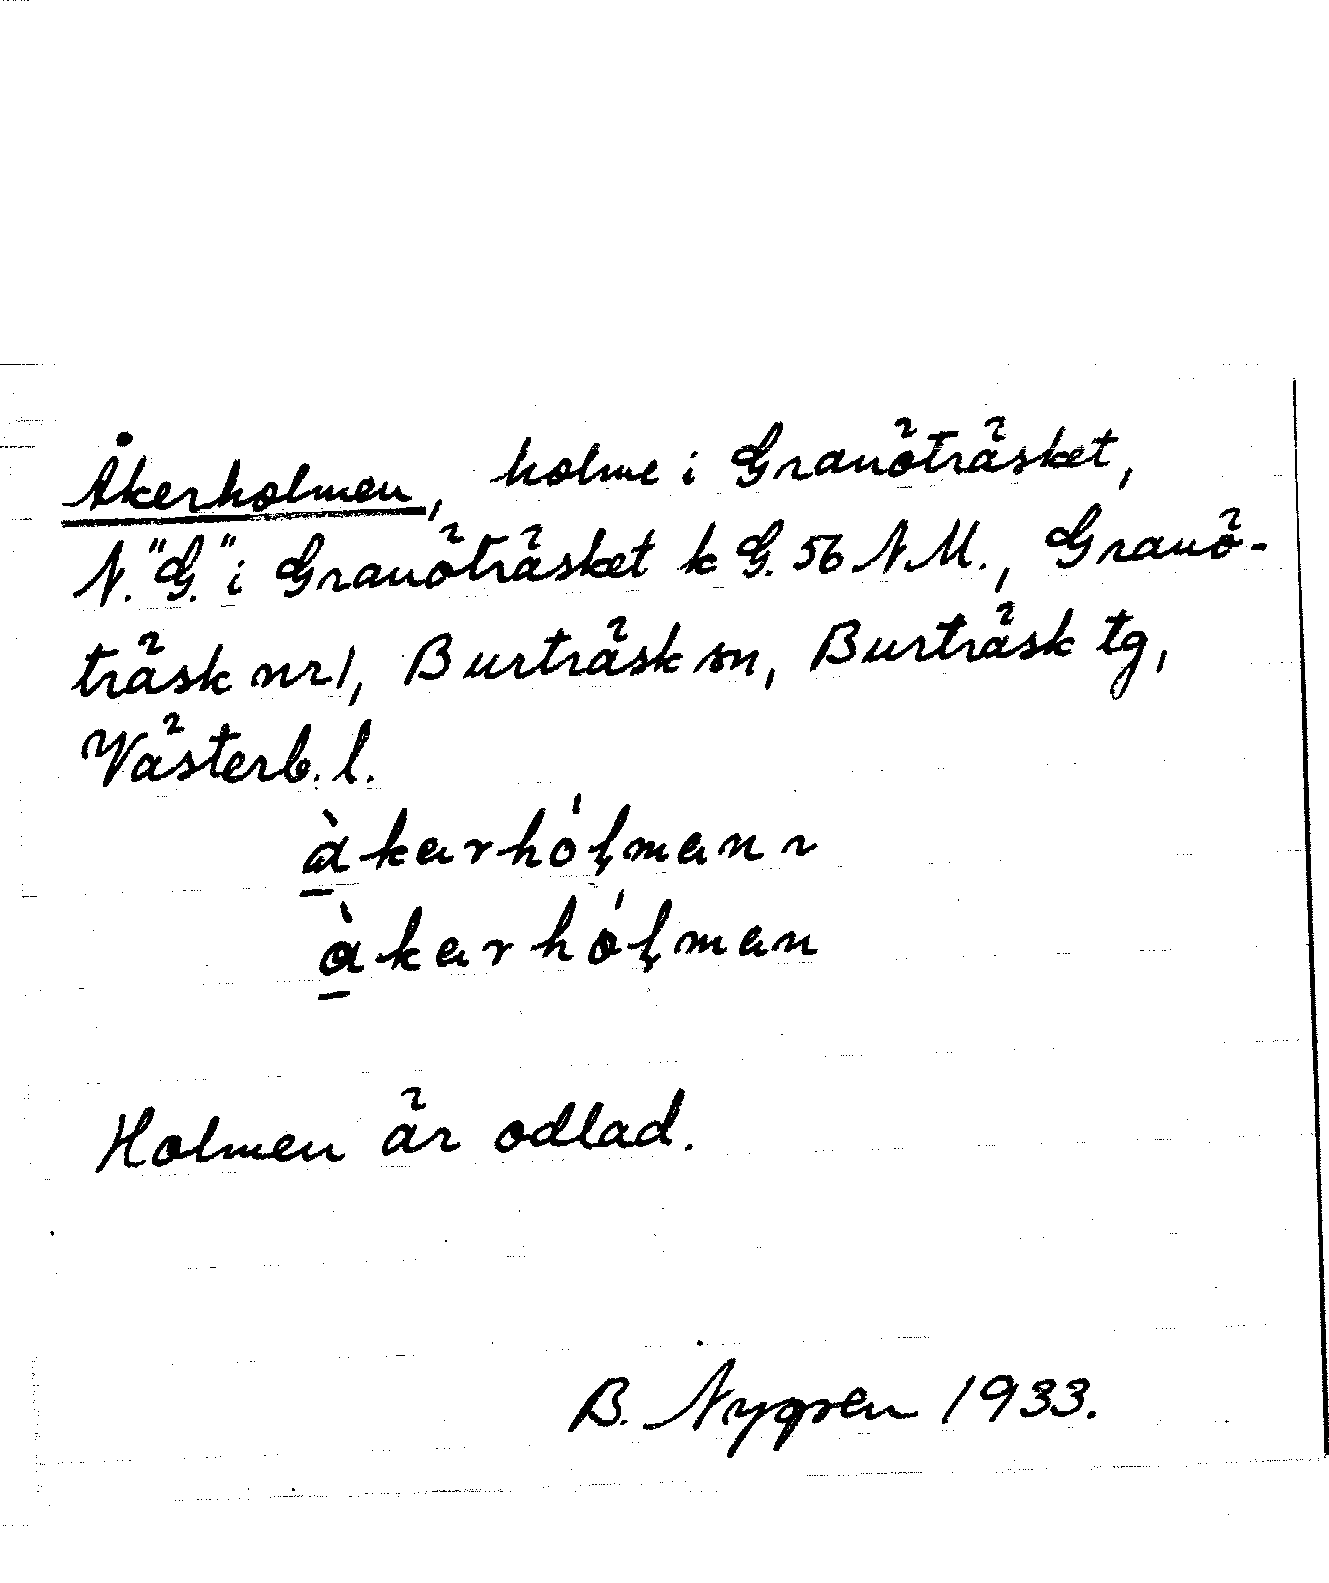 Åkerholmen, holme i Granöträsket,
N. "G." i Granöträsket k G. 56 N M., Granö-
träsk nr 1, Burträsk sn, Burträsk tg,
Västerb. l.
àkarhólman ~
àkarhólman
Holmen är odlad.
B. Nygren 1933.